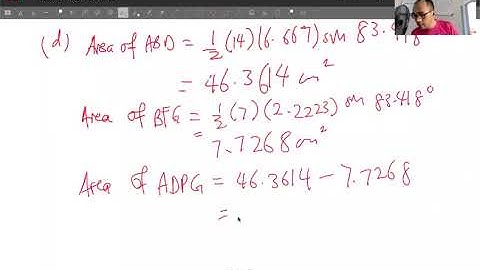 (d) Area of ABD = 1/2 (14)(6.667) sin 83.418°
= 46.3614 cm²
Area of BFG = 1/2 (7)(2.2223) sin 83.418°
= 7.7268 cm²
Area of ADFG = 46.3614 − 7.7268
=